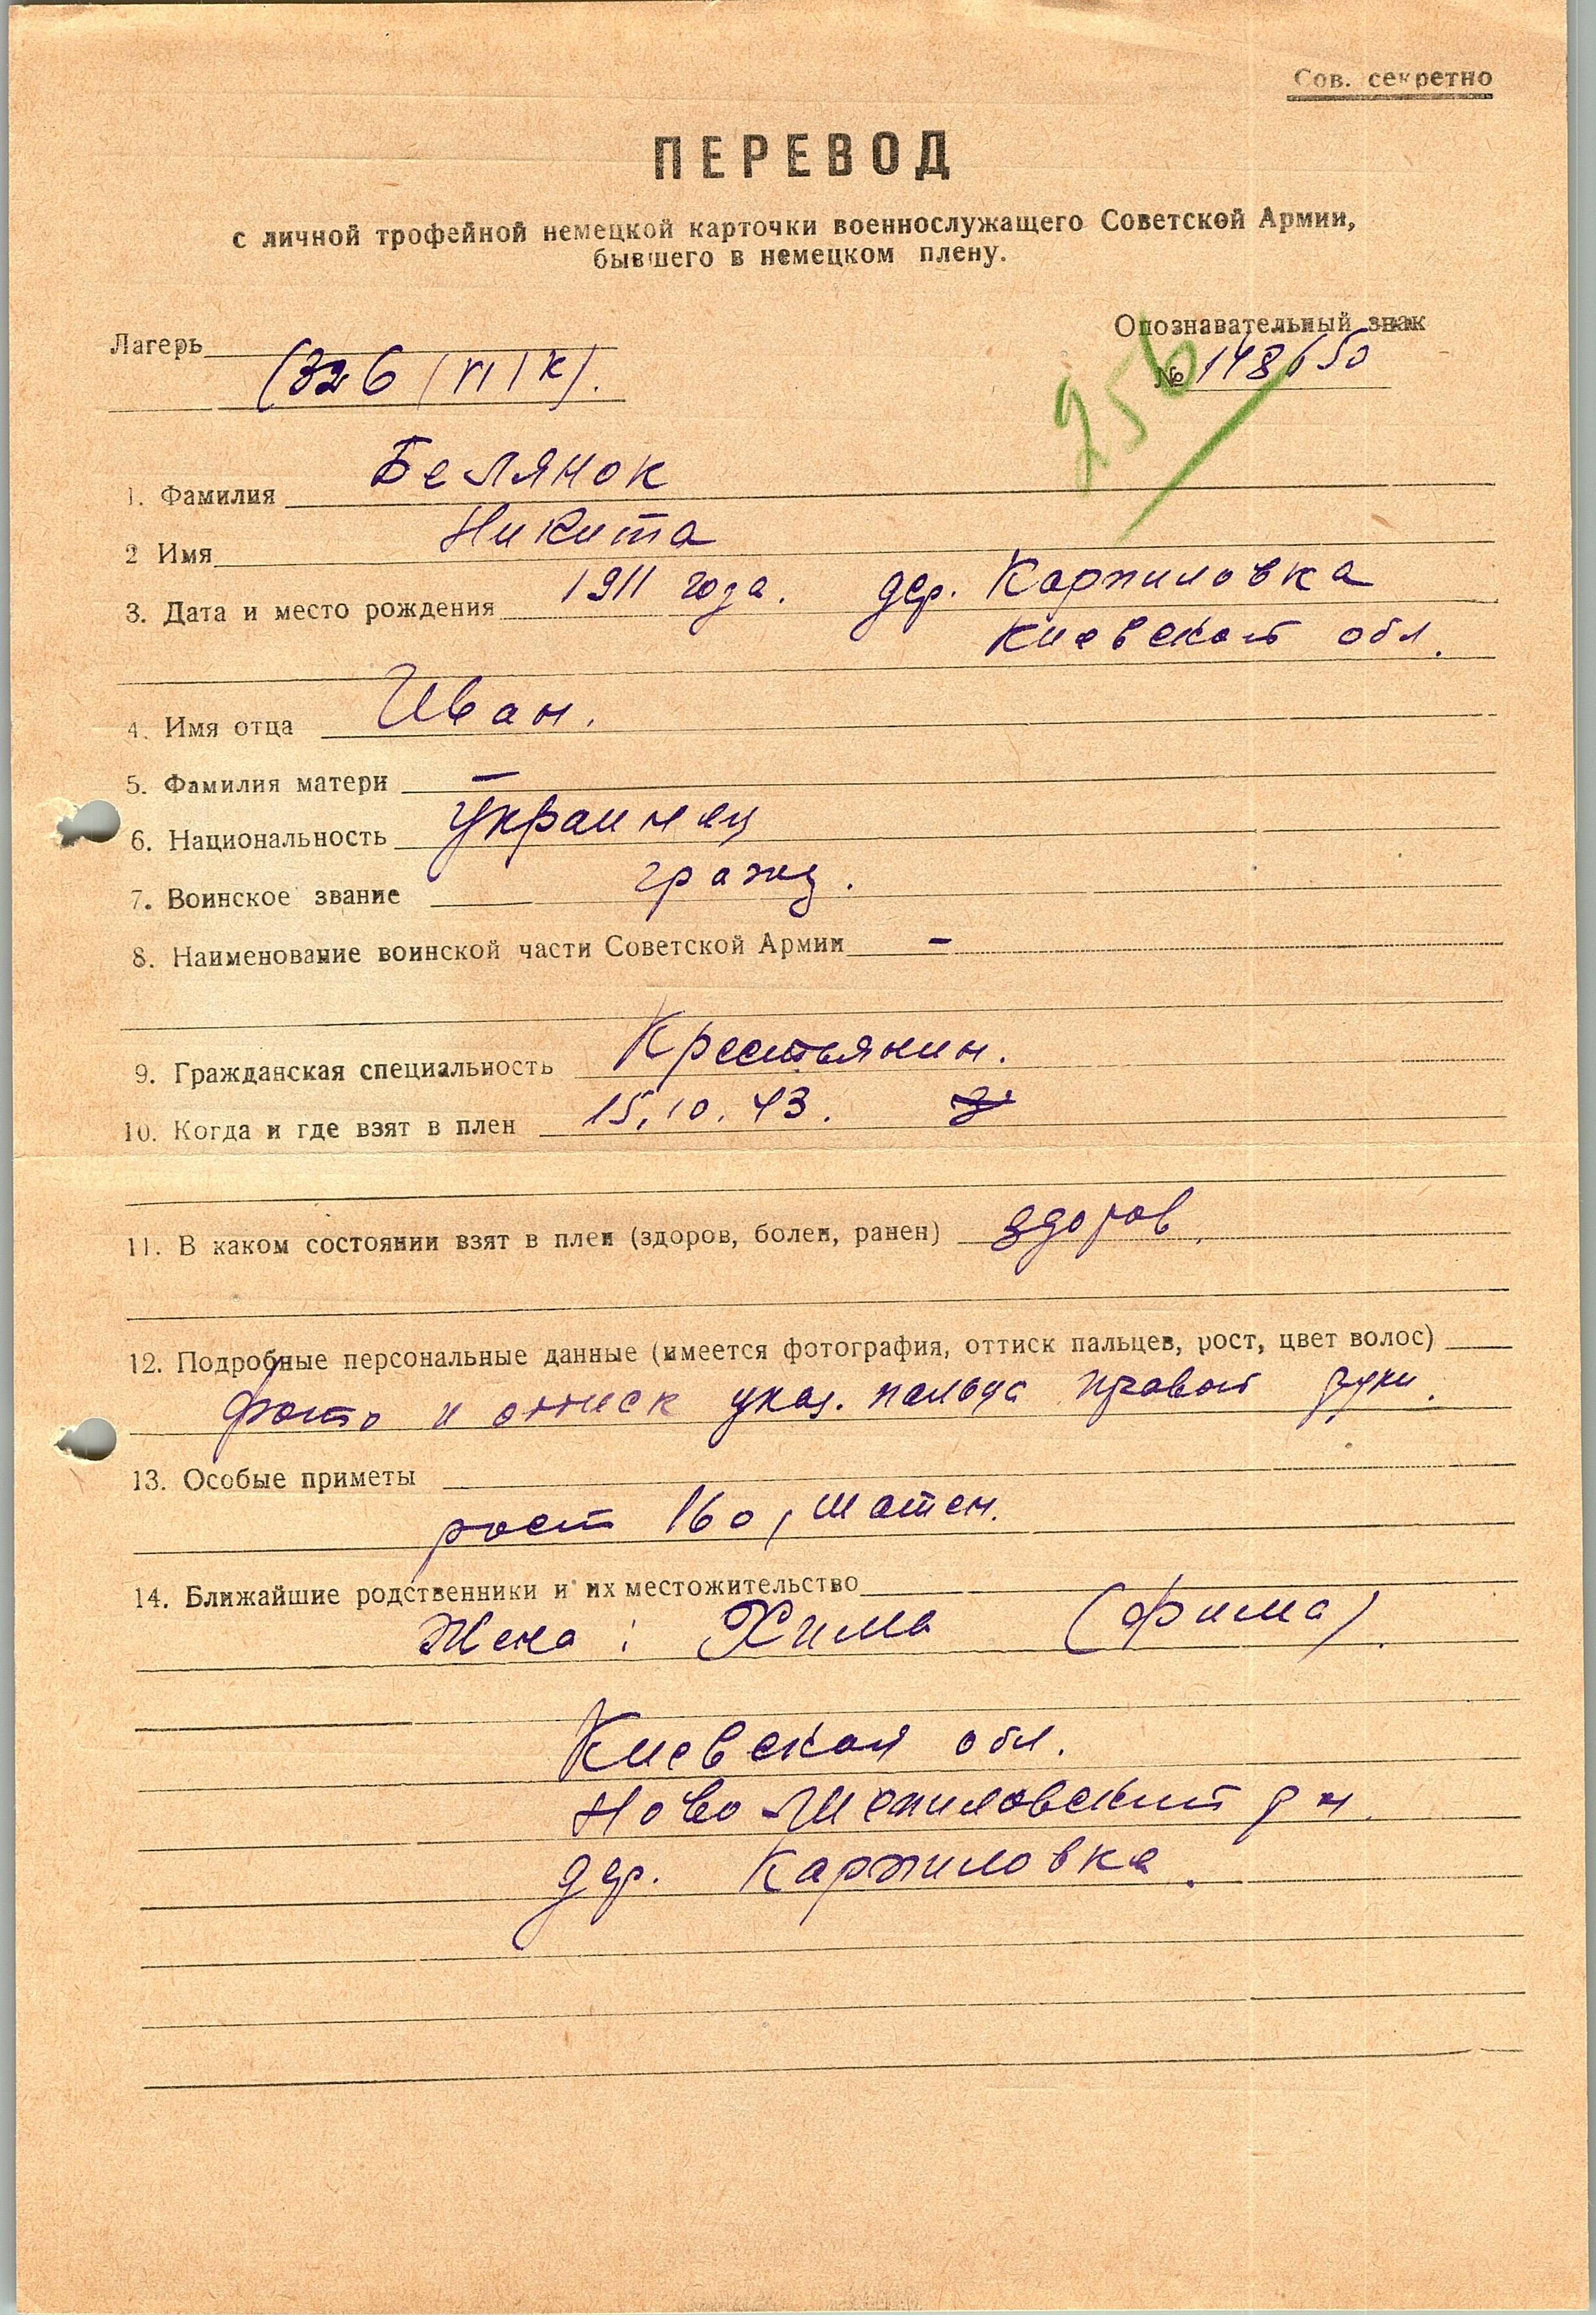 Сов. секретно
ПЕРЕВОД
с личной трофейной немецкой карточки военнослужащего Советской Армии,
бывшего в немецком плену.
Лагерь
(326 / VI / К).
Опознавательный знак
№ 148650
256
1. Фамилия Белянок
2 Имя Никита
3. Дата и место рождения 1911 года. дер. Карпиловка
Киевской обл.
4. Имя отца Иван.
5. Фамилия матери —
6. Национальность Украинец
7. Воинское звание гражд.
8. Наименование воинской части Советской Армии -
9. Гражданская специальность Крестьянин.
10. Когда и где взят в плен 15.10.43.
11. В каком состоянии взят в плен (здоров, болен, ранен) здоров.
12. Подробные персональные данные (имеется фотография, оттиск пальцев, рост, цвет волос)
Фото и оттиск указ. пальца правой руки.
13. Особые приметы
рост 160, шатен.
14. Ближайшие родственники и их местожительство
Жена: Хима (Фима).
Киевская обл.
Ново р-н.
дер. Карпиловка.